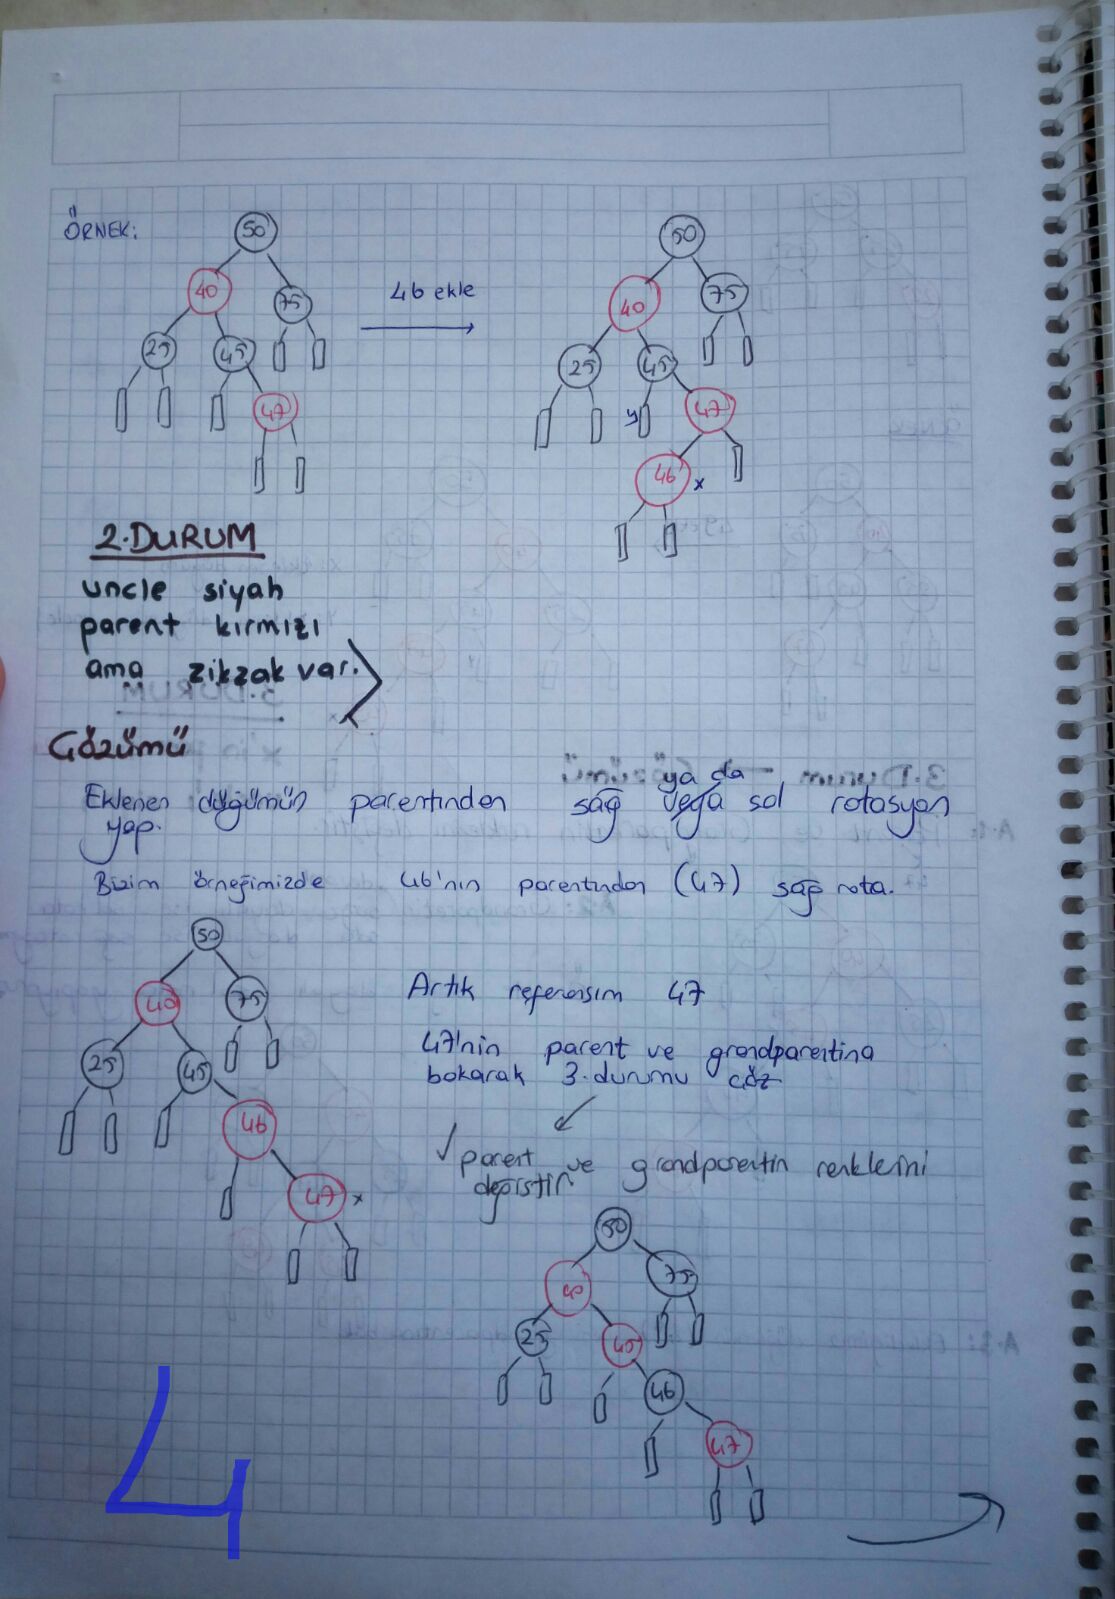 ÖRNEK:
50
40
75
25
45
47
46 ekle
50
40
75
25
45
y
47
46
x
2.DURUM
uncle siyah
parent kırmızı
ama zikzak var.
Çözümü
Eklenen düğümün parentından sağ ya da sol rotasyon
yap.
Bizim örneğimizde 46'nın parentından (47) sağ rota.
50
40
75
25
45
46
47 x
Artık referensım 47
47'nin parent ve grandparentına
bakarak 3.durumu çöz
√ parent ve grandparentin renklerini
değiştir
50
40
75
25
45
46
47
4